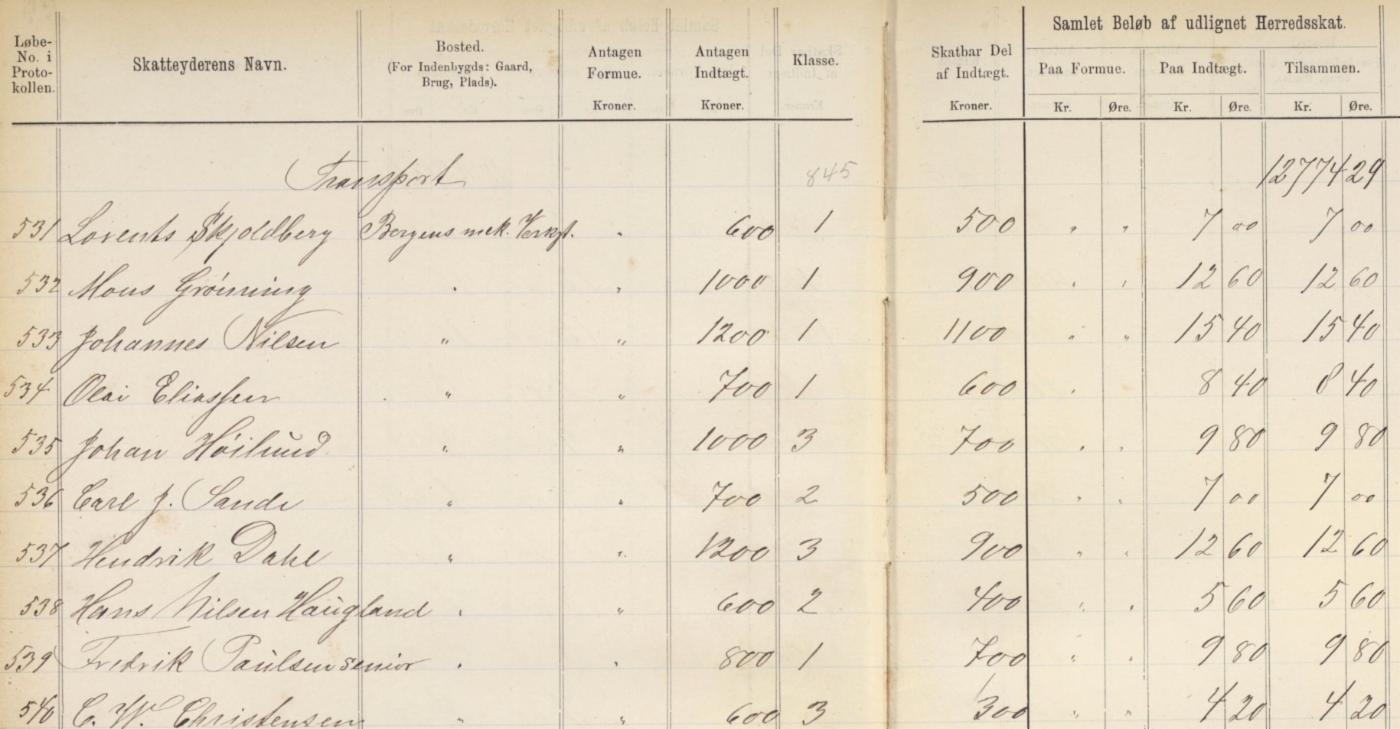 Løbe-No. i Proto-kollen. Skatteyderens Navn. Bosted. (For Indenbygds: Gaard, Brug, Plads). Antagen Formue. Kroner. Antagen Indtægt. Kroner. Klasse. Skatbar Del af Indtægt. Kroner. Samlet Beløb af udlignet Herredsskat. Paa Formue. Kr. Øre. Paa Indtægt. Kr. Øre. Tilsammen. Kr. Øre.
Transport 845 12774 29
531 Lorents Skjoldberg Bergens mek. Verkst. " 600 1 500 " " 7 00 7 00
532 Mons Grönning " " 1000 1 900 " " 12 60 12 60
533 Johannes Nilsen " " 1200 1 1100 " " 15 40 15 40
534 Olai Eliassen " " 700 1 600 " 8 40 8 40
535 Johan Höilund " " 1000 3 700 " " 9 80 9 80
536 Carl J. Sande " " 700 2 500 " " 7 00 7 00
537 Hendrik Dahl " " 1200 3 900 " " 12 60 12 60
538 Hans Nilsen Haugland " " 600 2 400 " " 5 60 5 60
539 Fredrik Paulsen senior " " 800 1 700 " " 9 80 9 80
540 C. W. Christensen " " 600 3 300 " " 4 20 4 20